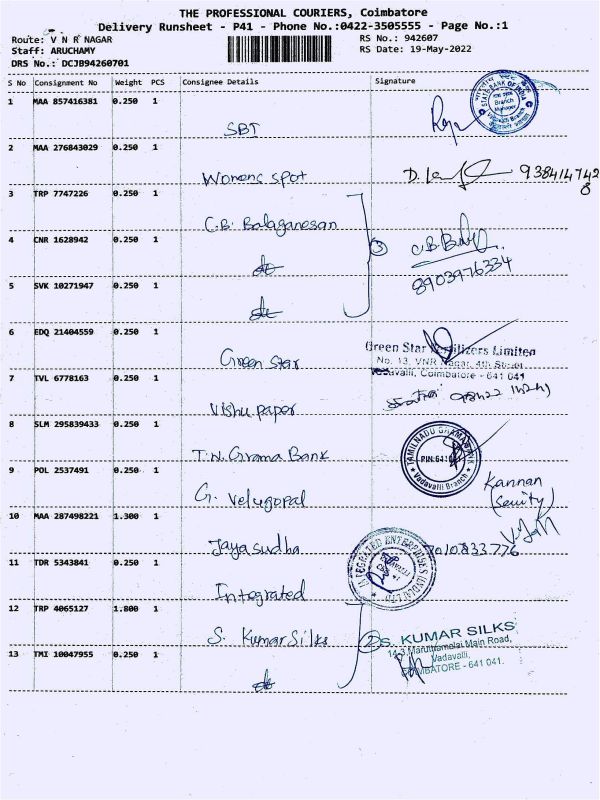 THE PROFESSIONAL COURIERS, Coimbatore
Delivery Runsheet - P41 - Phone No.:0422-3505555 - Page No.:1
Route: V N R NAGAR
RS No.: 942607
Staff: ARUCHAMY
RS Date: 19-May-2022
DRS No.: DCJB94260701
S No Consignment No Weight PCS Consignee Details Signature
1 MAA 857416381 0.250 1
STATE BANK OF INDIA
Branch Manager
SBI
2 MAA 276843029 0.250 1
Womens spot
9384147428
3 TRP 7747226 0.250 1
C.B. Balaganesan
4 CNR 1628942 0.250 1
3
8903976334
5 SVK 10271947 0.250 1
6 EDQ 21404559 0.250 1
Green Star Fertilizers Limited
No. 13, VNR Nagar, 4th Street
Vadavalli, Coimbatore - 641 041
Green star
7 TVL 6778163 0.250 1
Vishu paper
8 SLM 295839433 0.250 1
TAMILNADU GRAMA BANK
PIN:641041
Vadavalli Branch
T.N. Grama Bank
9 POL 2537491 0.250 1
G. Velugopal
Kannan
10 MAA 287498221 1.300 1
Jayasudha
7010833776
11 TDR 5343841 0.250 1
INTEGRATED ENTERPRISES (INDIA) LTD
Integrated
12 TRP 4065127 1.800 1
S. Kumar Silks
2
S. KUMAR SILKS
14-3, Maruthamalai Main Road,
Vadavalli,
COIMBATORE - 641 041.
13 TMI 10047955 0.250 1